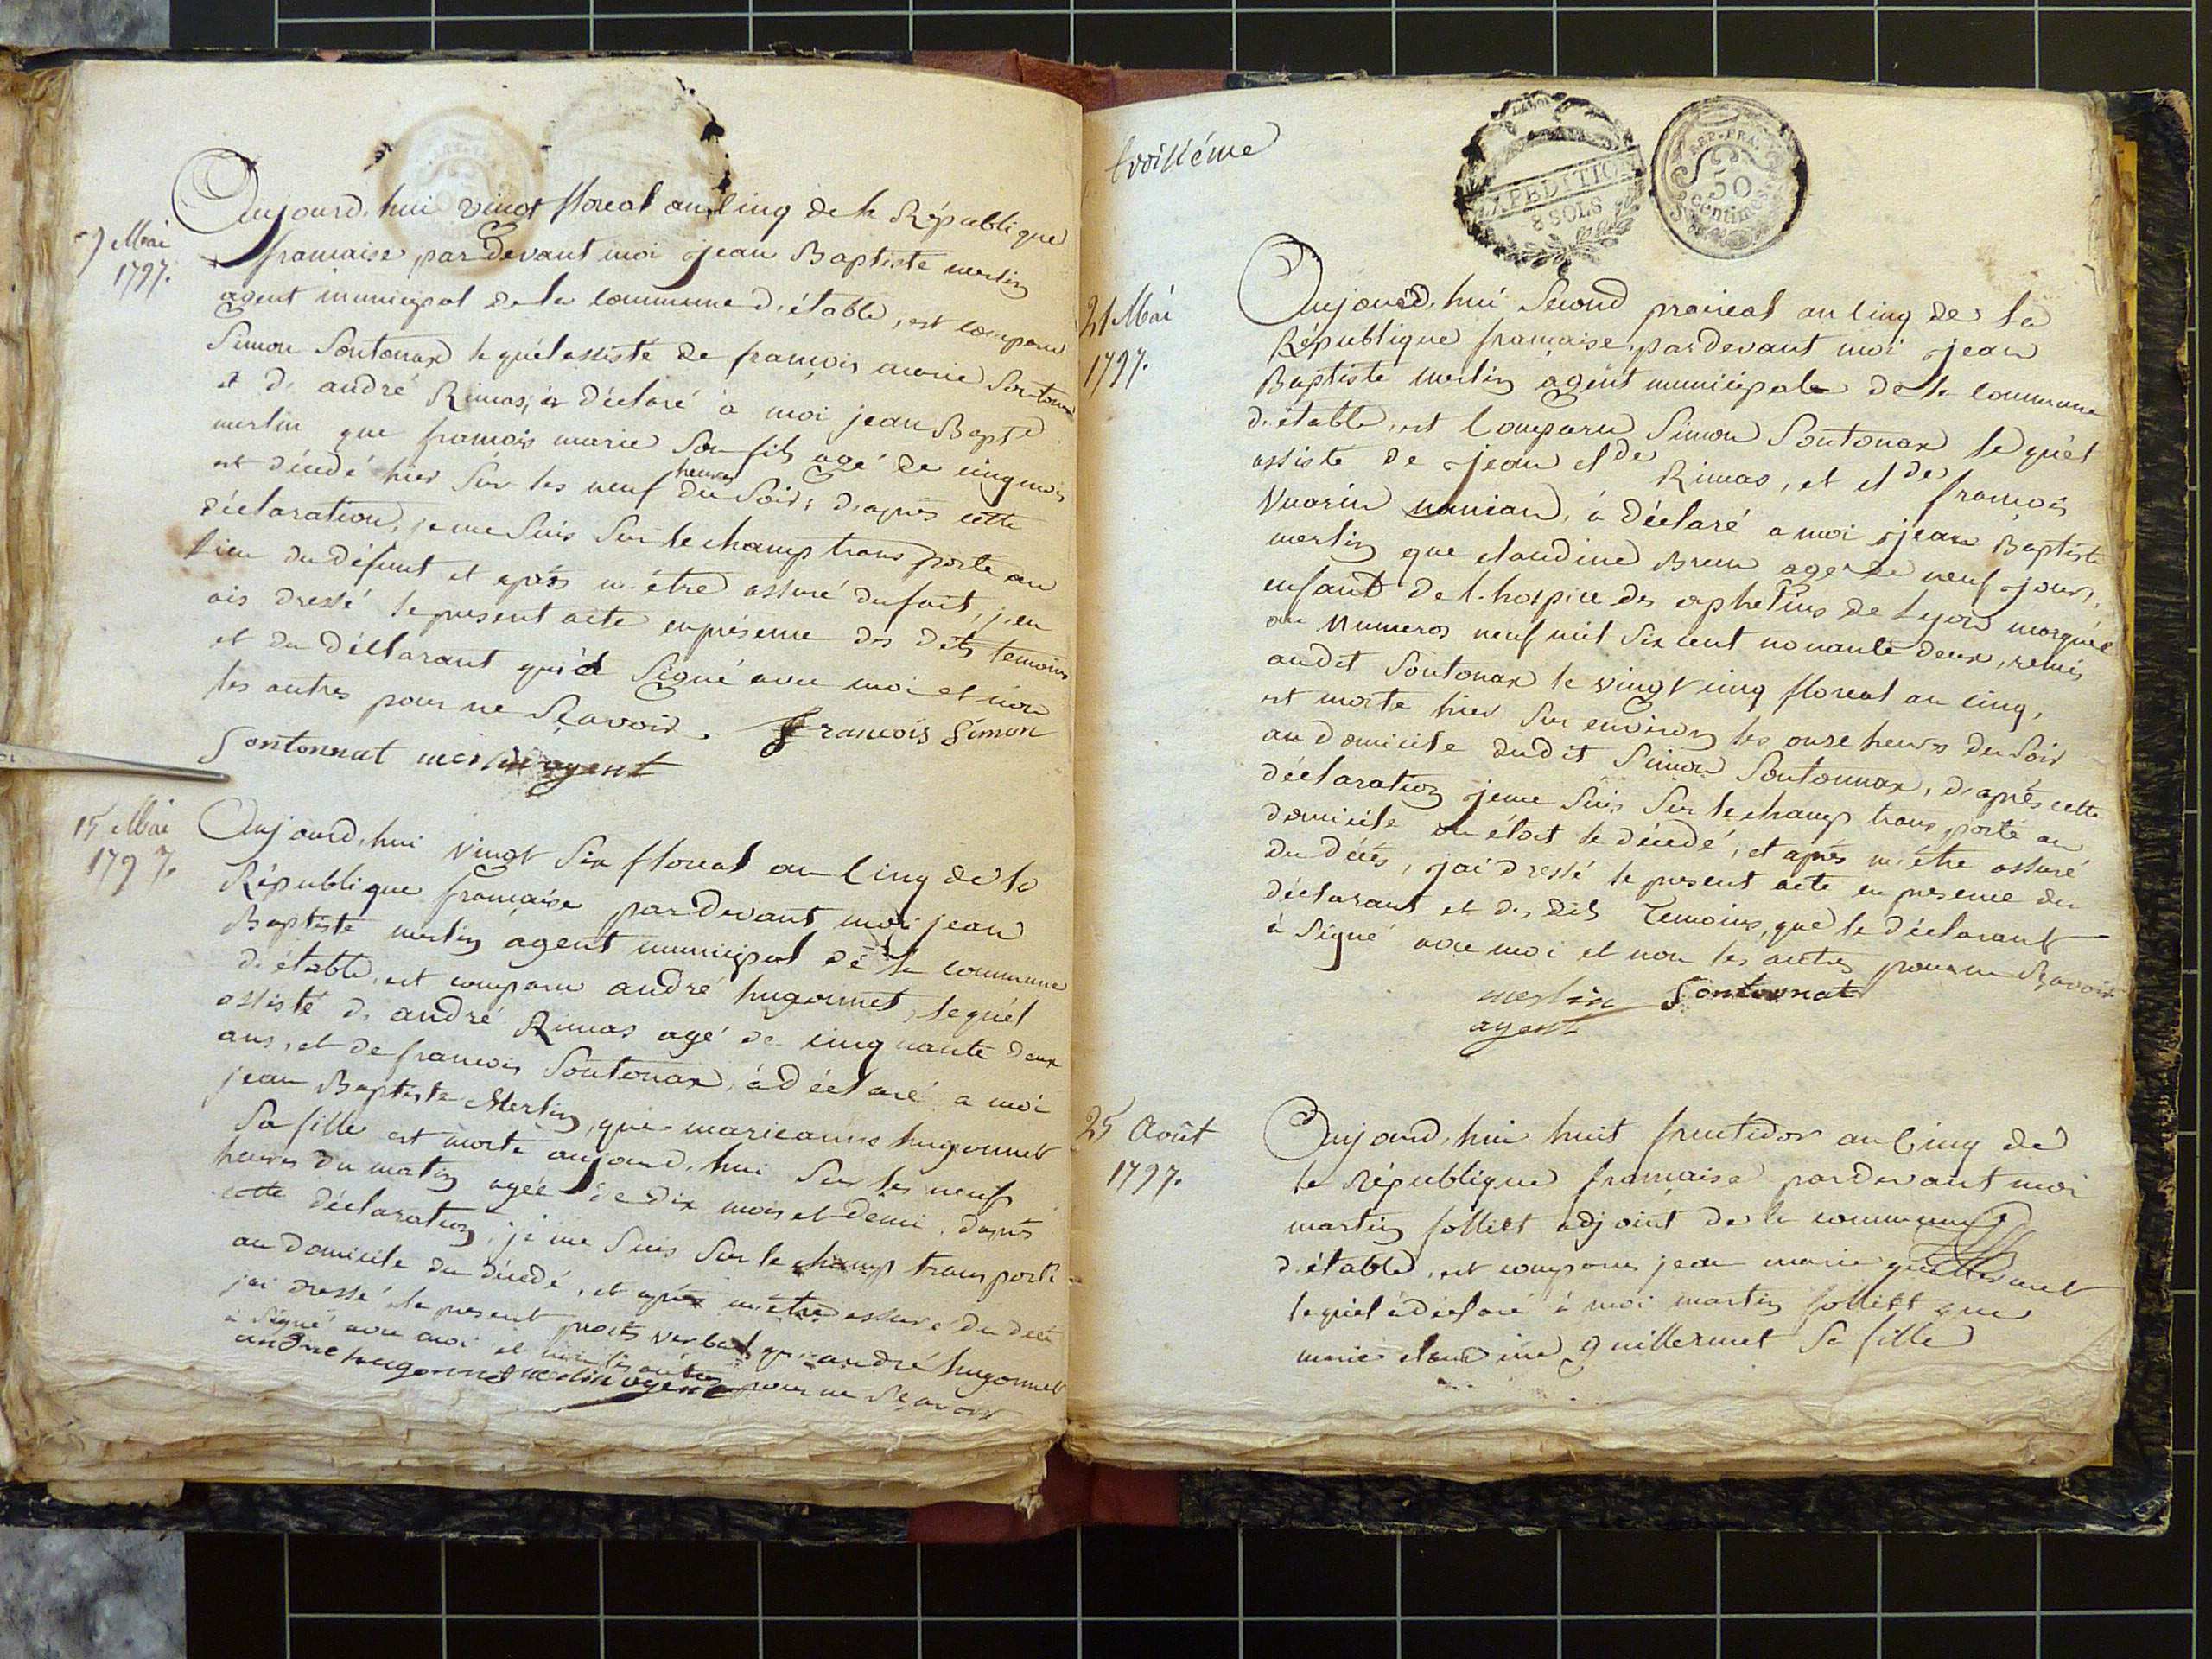 Aujourd'hui vingt floreal an cinq de la République
9 Mai
1797.
francaise, par devant moi jean Baptiste merlin
agent municipal de la commune d'étable, est comparu
Simon Sontonax lequel assisté de françois marie Sontonax
et d. andré Rimas, à déclaré à moi jean Bapte
merlin que francois marie son fils agé de cinq mois
est décédé hier sur les neuf heures du soir, d'après cette
déclaration, je me suis sur le champ transporté au
lieu du défunt et après m'être assuré du fait, j'en
ais dressé le present acte en présence des dits temoins
et du déclarant qui à signé avec moi et non
les autres pour ne sçavoir. francois Simon
Sontonnat merlin agent
15 Mai
1797.
Aujourd'hui vingt six floreal an cinq de la
République française par devant moi jean
Baptiste merlin agent municipal de la commune
d'étable, est comparu andré hugonnet, lequél
assisté d. andré Rimas agé de cinquante deux
ans, et de francois Sontonax, à déclaré a moi
jean Baptiste Merlin, que marieanne hugonnet
sa fille est morte aujourd'hui sur les neuf
heures du matin agée de dix mois et demi, daprès
cette déclaration, je me suis sur le champ transporté
au domicile du décédé, et après m'être assuré du décè
jai dressé le present procès verbal que andré hugonnet
à signé avec moi et non les autres pour ne sçavoir
andre hugonnet merlin agent
troisiéme
EXPEDITION
8 SOLS
REP. FRA.
50
Centimes
21 Mai
1797.
Aujourd'hui second prairial an cinq de la
République francaise, pardevant moi jean
Baptiste merlin agent municipale de la commune
d'étable, est comparu Simon Sontonax lequél
assisté de jean Cl de Rimas, et Cl de francois
Vuarin, à déclaré a moi jean Baptiste
merlin que claudine Brun agé de neuf jours,
enfant de l'hospice des orphelins de Lyon marquée
au numeros neuf mil six cent nonante deux, remis
audit Sontonax le vingt cinq floreal an cinq,
est morte hier sur environ les onze heures du soir
au domicile dudit Simon Sontonnax, d'après cette
déclaration je me suis sur le champ transporté au
domicile ou étoit le décedé, et après m'être assuré
du décès, jai dressé le present acte en presence du
déclarant et des dits temoins, que le déclarant
à signé avec moi et non les autres pour ne sçavoir
merlin Sontonnat
agent
25 Août
1797.
Aujourd'hui huit fructidor an cinq de
la République francaise pardevant moi
martin folliet adjoint de la commune
d'étable, est comparu jean marie guillermet
lequél à déclaré à moi martin folliet que
marie claudine guillermet sa fille